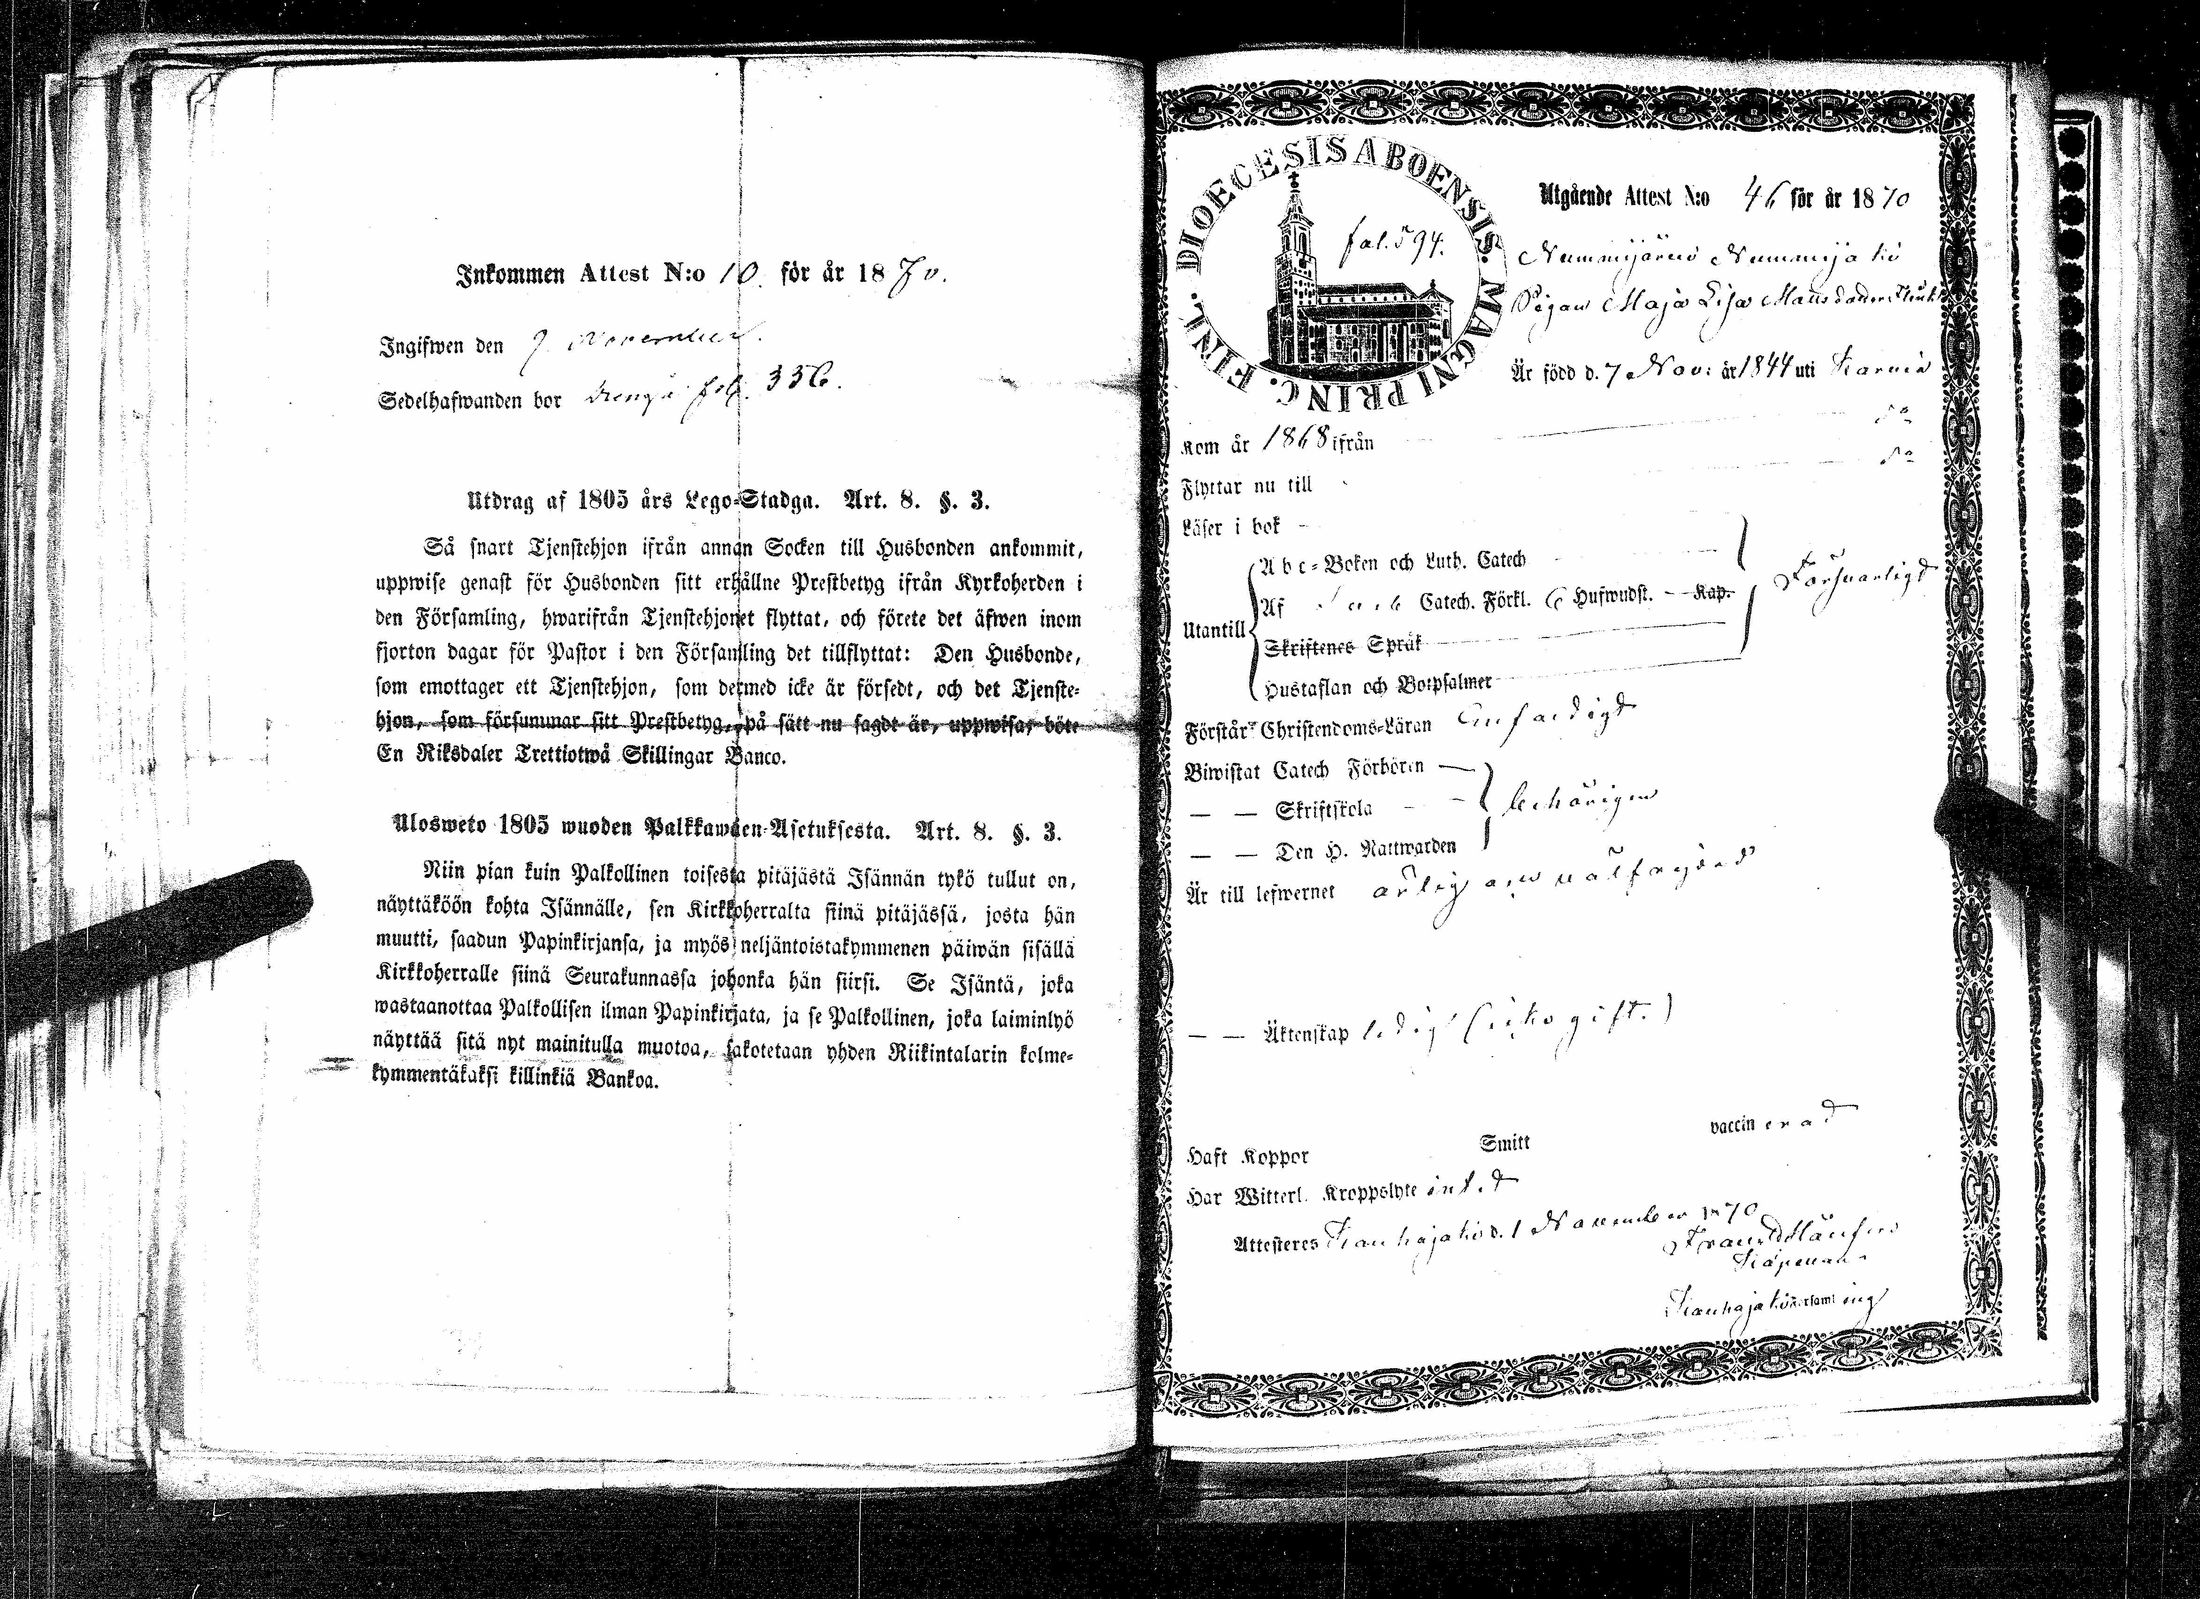 Inkommen Attest N:o 10. för år 1870.
Ingifwen den 9 November.
Sedelhafwanden bor fol. 336.
Utdrag af 1805 års Lego-Stadga. Art. 8. §. 3.
Så snart Tjenstehjon ifrån annan Socken till Husbonden ankommit,
uppwise genast för Husbonden sitt erhållne Prestbetyg ifrån Kyrkoherden i
den Församling, hwarifrån Tjenstehjonet flyttat, och förete det äfwen inom
fjorton dagar för Pastor i den Församling det tillflyttat: Den Husbonde,
som emottager ett Tjenstehjon, som dermed icke är försedt, och det Tjenste-
hjon, som försummar sitt Prestbetyg, på sätt nu sagdt är, uppwisa, böte
En Riksdaler Trettiotwå Skillingar Banco.
Ulosweto 1805 wuoden Palkkawäen-Asetuksesta. Art. 8. §. 3.
Niin pian kuin Palkollinen toisesta pitäjästä Isännän tykö tullut on,
näyttäköön kohta Isännälle, sen Kirkkoherralta siinä pitäjässä, josta hän
muutti, saadun Papinkirjansa, ja myös neljäntoistakymmenen päiwän sisällä
Kirkkoherralle siinä Seurakunnassa johonka hän siirsi. Se Isäntä, joka
wastaanottaa Palkollisen ilman Papinkirjata, ja se Palkollinen, joka laiminlyö
näyttää sitä nyt mainitulla muotoa, sakotetaan yhden Riikintalarin kolme-
kymmentäkaksi killinkiä Bankoa.
DIOECESIS ABOENSIS. MAGNI PRINC. FINL.
fol. 594.
Utgående Attest N:o 46 för år 1870
Nummijärvi Nummijako
Pigan Maja Lisa Mattsdotter
Är född d. 7 Nov: år 1844 uti Karvia
Kom år 1868 ifrån do
Flyttar nu till do
Läser i bok
Abc-Boken och Luth. Catech
Utantill
Af Catech. Förkl. 6 Hufwudst. Kap.
Försvarligt
Skriftenes Språk
Hustaflan och Botpsalmer
Förstår Christendoms-Läran Enfaldigt
Biwistat Catech Förhören
— — Skriftskola behörigen
— — Den H. Nattwarden
Är till lefwernet ärlig och välfrejdad
— — Äktenskap ledig (icke gift.)
Haft Koppor Smitt vaccinerad
Har Witterl. Kroppslyte intet
Attesteres Kauhajoki d. 1 November 1870
Frans
Kapellan
Kauhajoki Församling